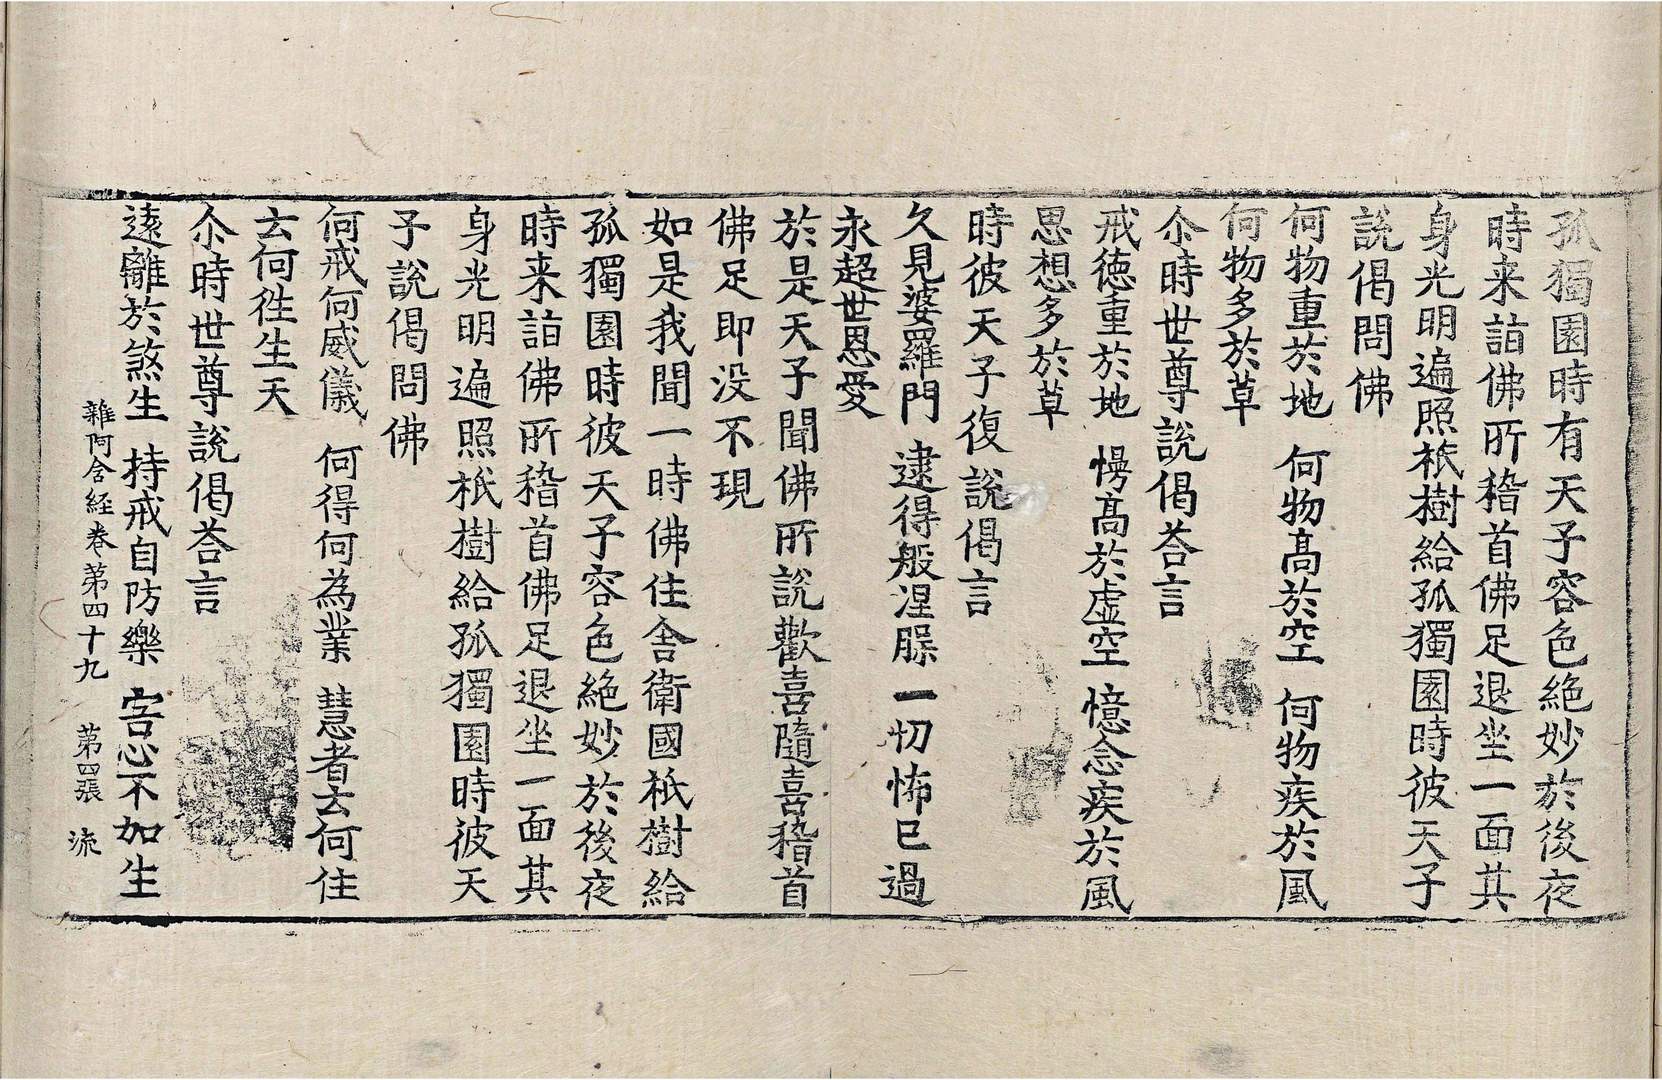 孤獨園時有天子容色絶妙於後夜
時来詣佛所稽首佛足退坐一面其
身光明遍照祇樹給孤獨園時彼天子
說偈問佛
何物重於地 何物高於空 何物疾於風
何物多於草
尒時世尊說偈荅言
戒德重於地 慢高於虛空 憶念疾於風
思想多於草
時彼天子復說偈言
久見婆羅門 逮得般涅槃 一切怖已過
永超世恩愛
於是天子聞佛所說歡喜隨喜稽首
佛足即没不現
如是我聞一時佛住舍衛國祇樹給
孤獨園時彼天子容色絶妙於後夜
時来詣佛所稽首佛足退坐一面其
身光明遍照祇樹給孤獨園時彼天
子說偈問佛
何戒何威儀 何得何為業 慧者云何住
云何徃生天
尒時世尊說偈荅言
遠離於煞生 持戒自防樂 害心不加生
雜阿含経卷第四十九 第四張 流